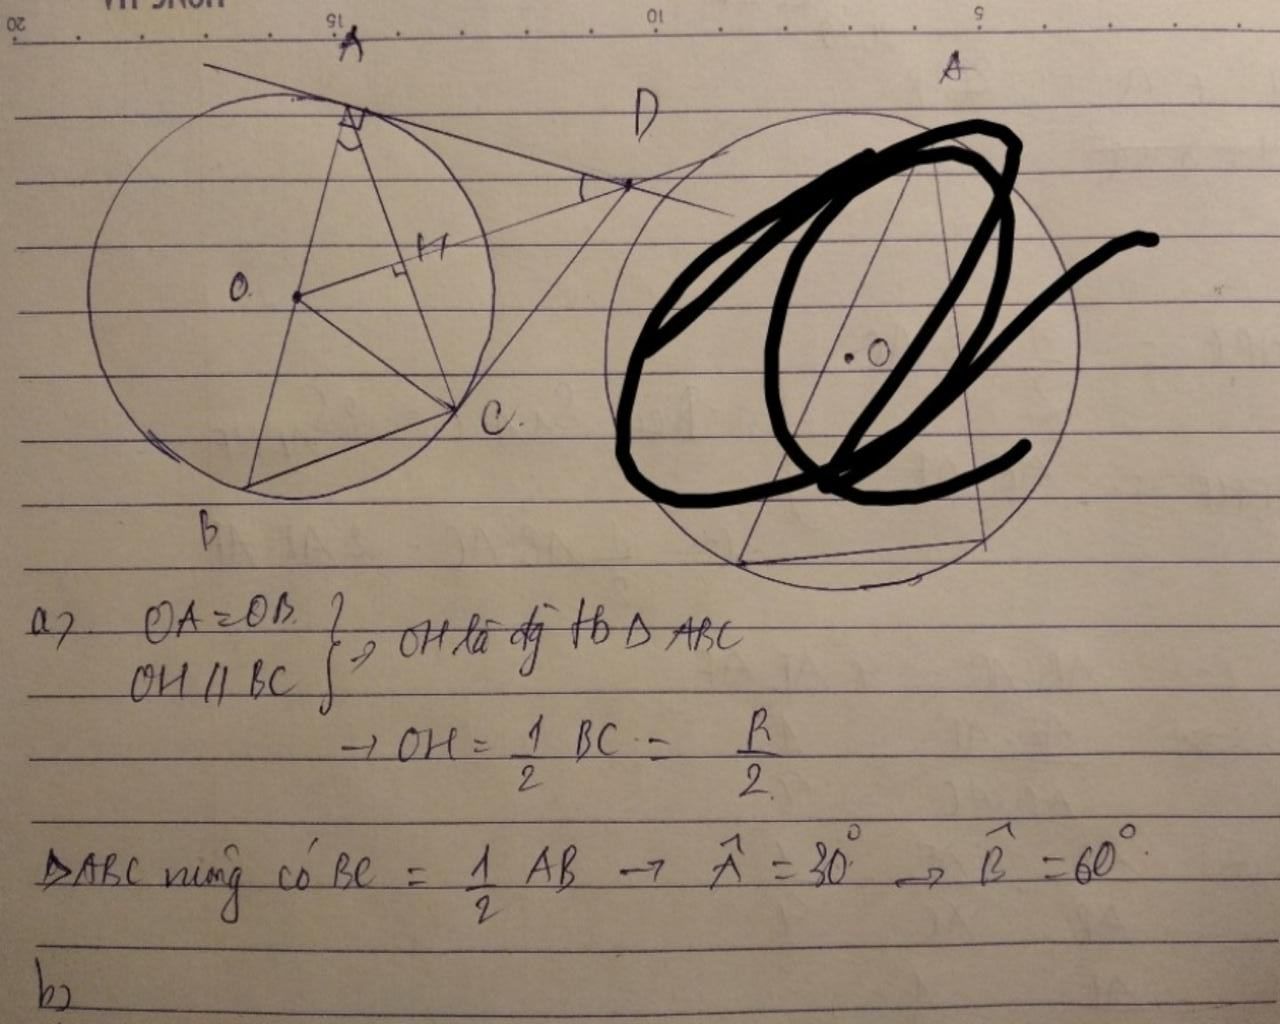 20 15 10 5
A
A
D
H
O.
.O
C.
B
a) OA = OB
OH // BC } → OH là đg tb Δ ABC
→ OH = 1/2 BC = R/2
ΔABC vuông có BC = 1/2 AB → Â = 30° → B̂ = 60°
b)